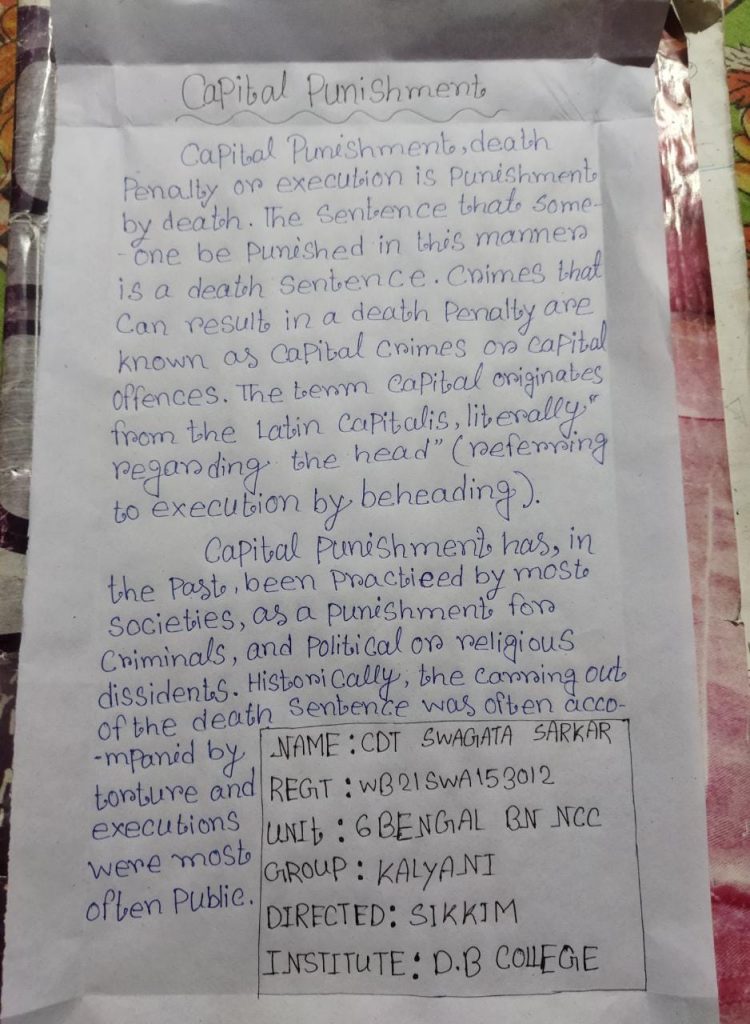 Capital Punishment
Capital Punishment, death
Penalty or execution is Punishment
by death. The Sentence that some-
-one be Punished in this manner
is a death Sentence. Crimes that
Can result in a death Penalty are
known as Capital Crimes or Capital
Offences. The term Capital originates
from the Latin Capitalis, literally "
regarding the head" (referring
to execution by beheading).
Capital Punishment has, in
the Past, been Practieed by most
Societies, as a Punishment for
Criminals, and Political or religious
dissidents. Historically, the carring out
of the death Sentence was often acco-
-mpanid by
torture and
executions
were most
often Public.
NAME : CDT SWAGATA SARKAR
REGT : WB21SWA153012
UNIt : 6 BENGAL BN NCC
GROUP : KALYANI
DIRECTED : SIKKIM
INSTITUTE : D.B COllEGE